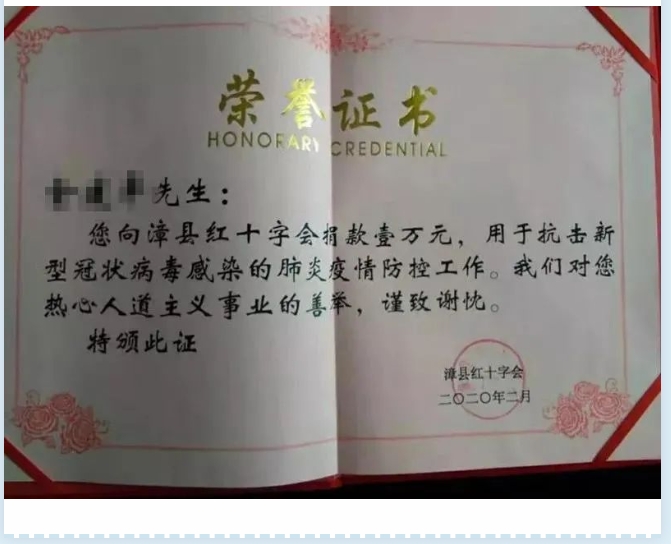 荣誉证书
HONORARY CREDENTIAL
先生：
您向漳县红十字会捐款壹万元，用于抗击新
型冠状病毒感染的肺炎疫情防控工作。我们对您
热心人道主义事业的善举，谨致谢忱。
特颁此证
漳县红十字会
二〇二〇年二月